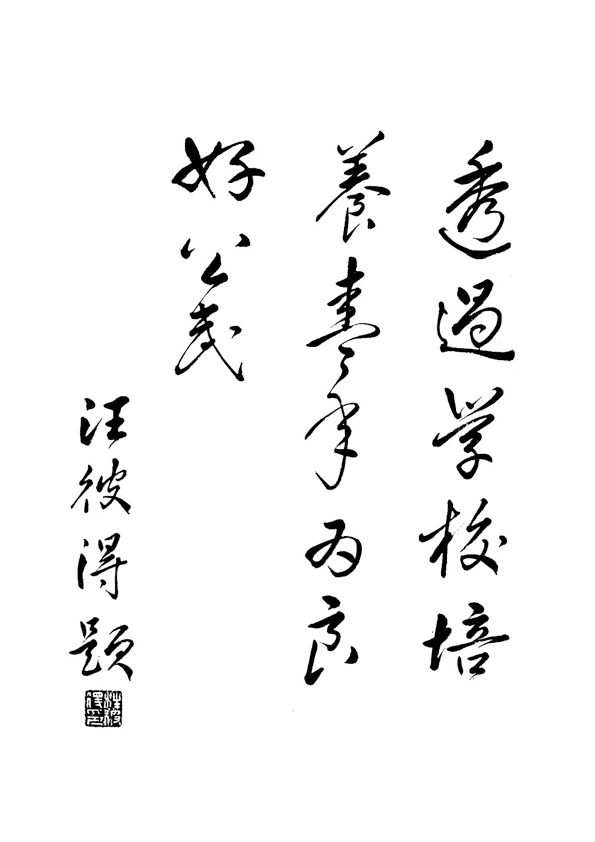 透過学校培
養青年为良
好公民
汪彼得題